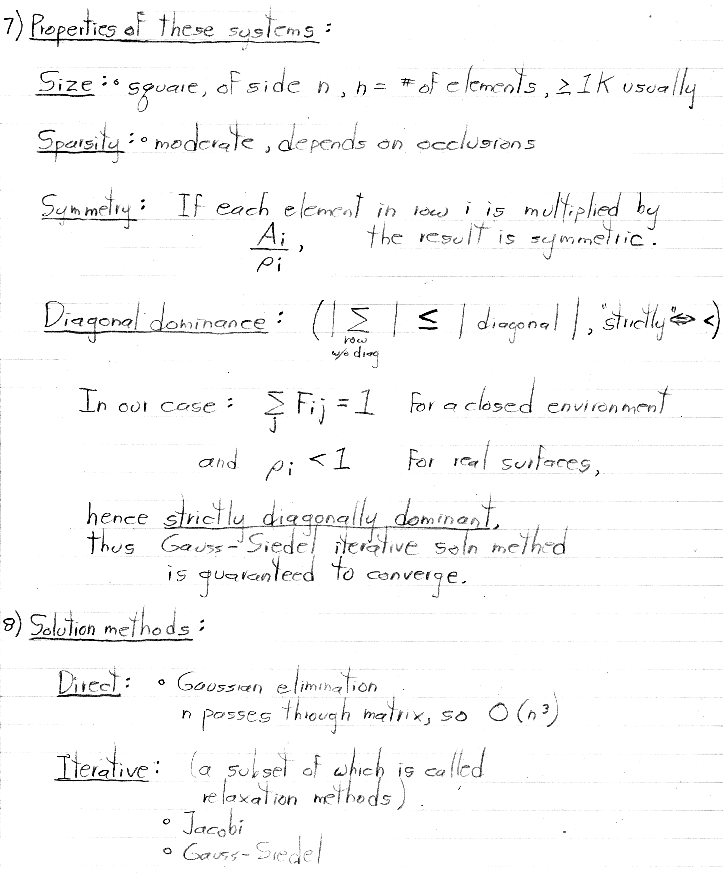 7) Properties of these systems :
Size : • square, of side n, n = # of elements, ≥ 1K usually
Sparsity : • moderate, depends on occlusions
Symmetry : If each element in row i is multiplied by
Ai/ρi , the result is symmetric.
Diagonal dominance : ( | Σ row w/o diag | ≤ | diagonal | , "strictly" ⇔ < )
In our case : Σj Fij = 1 for a closed environment
and ρi < 1 for real surfaces,
hence strictly diagonally dominant,
thus Gauss-Siedel iterative soln method
is guaranteed to converge.
8) Solution methods :
Direct : • Gaussian elimination
n passes through matrix, so O(n³)
Iterative : (a subset of which is called
relaxation methods)
• Jacobi
• Gauss-Siedel